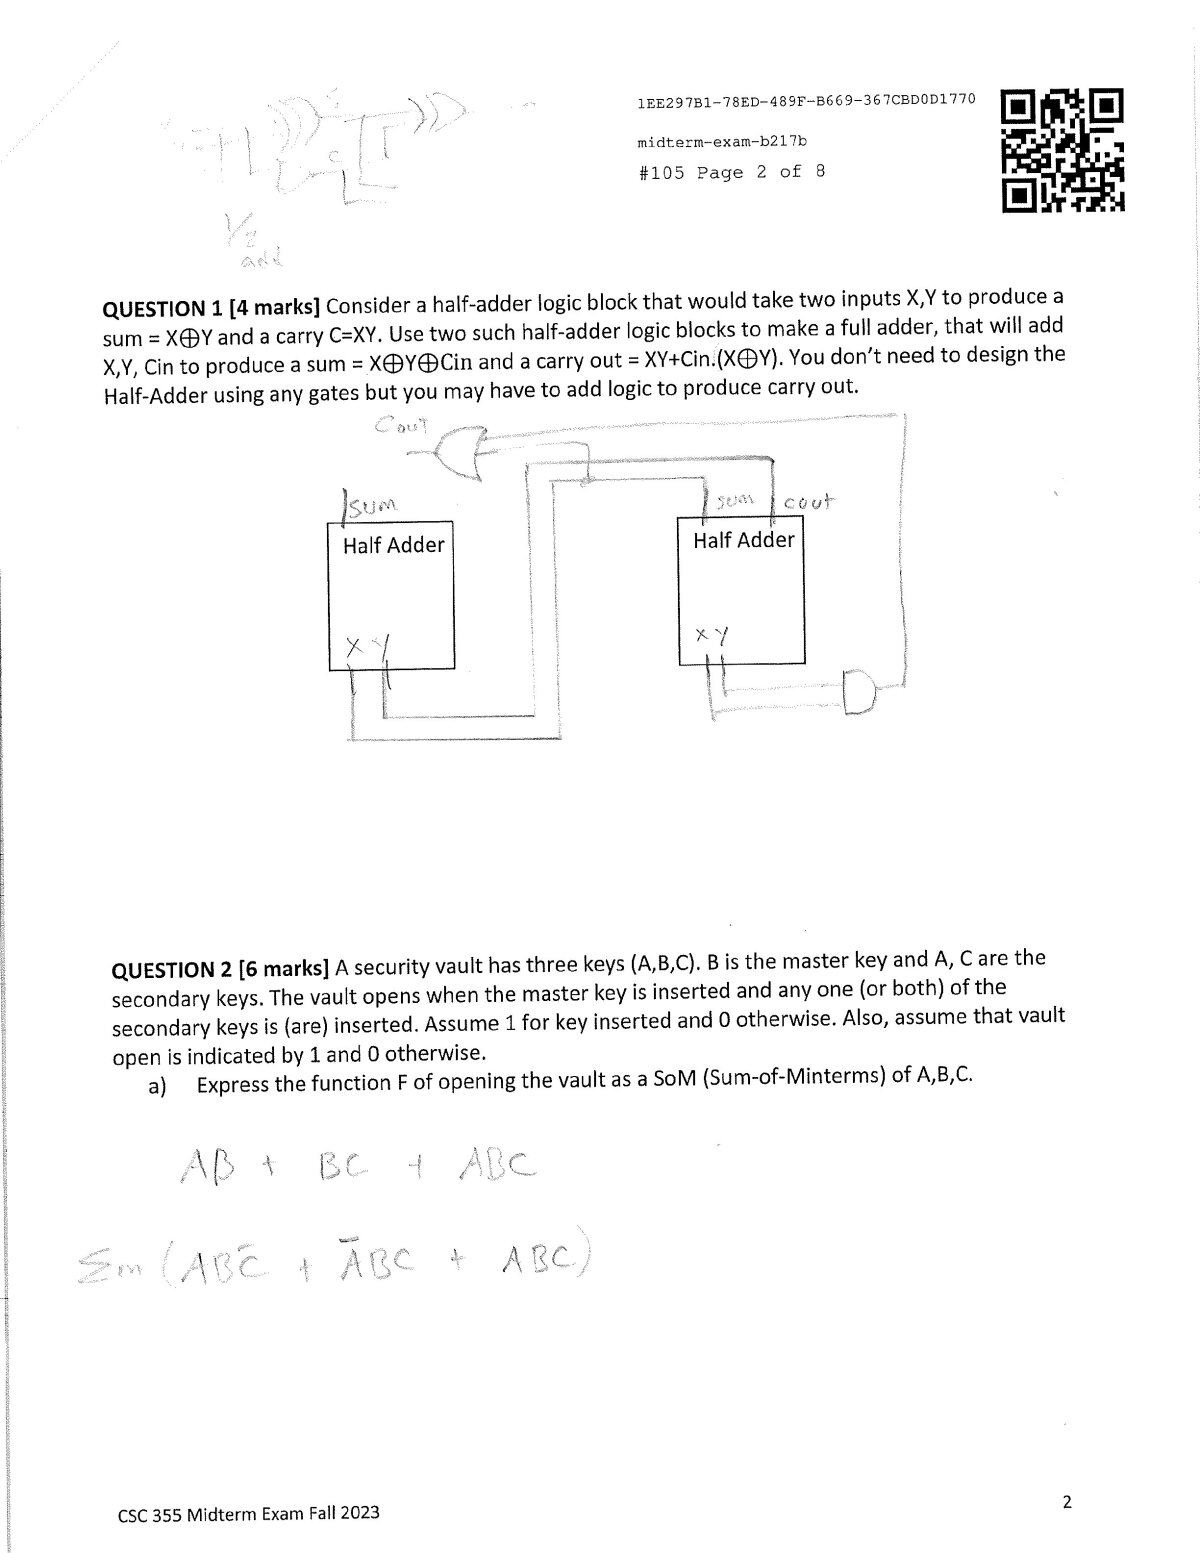 1EE297B1-78ED-489F-B669-367CBD0D1770
midterm-exam-b217b
#105 Page 2 of 8
1/2
add
QUESTION 1 [4 marks] Consider a half-adder logic block that would take two inputs X,Y to produce a
sum = X⊕Y and a carry C=XY. Use two such half-adder logic blocks to make a full adder, that will add
X,Y, Cin to produce a sum = X⊕Y⊕Cin and a carry out = XY+Cin.(X⊕Y). You don't need to design the
Half-Adder using any gates but you may have to add logic to produce carry out.
Cout
sum
sum cout
Half Adder
Half Adder
X Y
X Y
QUESTION 2 [6 marks] A security vault has three keys (A,B,C). B is the master key and A, C are the
secondary keys. The vault opens when the master key is inserted and any one (or both) of the
secondary keys is (are) inserted. Assume 1 for key inserted and 0 otherwise. Also, assume that vault
open is indicated by 1 and 0 otherwise.
a) Express the function F of opening the vault as a SoM (Sum-of-Minterms) of A,B,C.
AB + BC + ABC
Σm (ABC̅ + A̅BC + ABC)
CSC 355 Midterm Exam Fall 2023
2